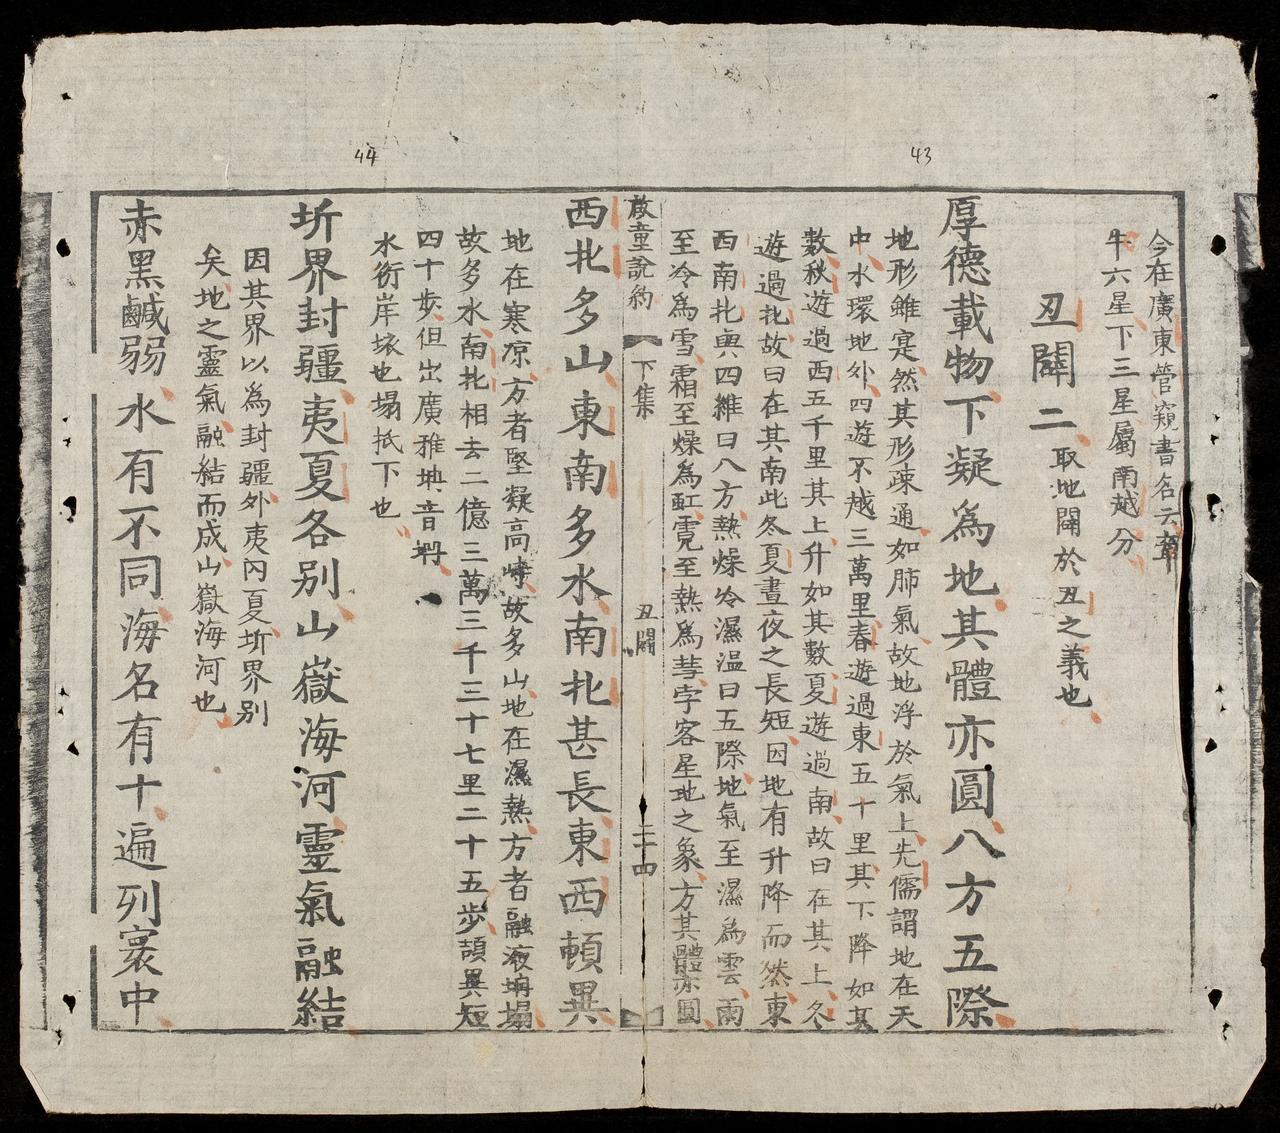 43
今在廣東管窺書名云牽
牛六星下三星屬南越分
丑闢二取地闢於丑之義也
厚德載物下凝為地其體亦圓八方五際
地形雖寔然其形疎通如肺氣故地浮於氣上先儒謂地在天
中水環地外四遊不越三萬里春遊過東五十里其下降如其
數秋遊過西五千里其上升如其數夏遊過南故曰在其上冬
遊過北故曰在其南此冬夏晝夜之長短因地有升降而然東
西南北與四維曰八方熱燥冷濕温曰五際地氣至濕為雲雨
至冷為雪霜至燥為虹霓至熱為彗孛客星地之象方其體亦圓
啟童說約
下集
丑闢
二十四
44
西北多山東南多水南北甚長東西頓異
地在寒凉方者堅凝高峙故多山地在濕熱方者融液坍塌
故多水南北相去二億三萬三千三十七里二十五步頡異短
四十步但出廣雅㙁音坍
水衝岸壊也塌抵下也
圻界封疆夷夏各别山嶽海河靈氣融結
因其界以為封疆外夷內夏圻界别
矣地之靈氣融結而成山嶽海河也
赤黑鹹弱水有不同海名有十遍列寰中